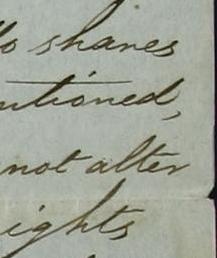 shares
ntioned,
not alter
ights